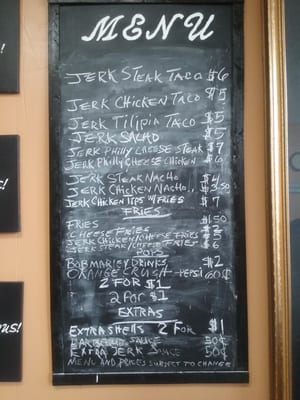 MENU
JERK STEAK TACO $6
JERK CHICKEN TACO $5
JERK TILIPIA TACO $5
JERK SALAD $5
JERK PHILLY CHEESE STEAK $7
JERK PHILLY CHEESE CHICKEN $6
JERK STEAK NACHO $4
JERK CHICKEN NACHO.. $3.50
JERK CHICKEN TIPS W/FRIES $7
FRIES
FRIES $1.50
CHEESE FRIES $2
JERK CHICKEN/CHEESE FRIES $5
JERK STEAK/CHEESE FRIES $6
POP'S
BOB MARLEY DRINKS $2
ORANGE CRUSH - PEPSI 60¢
2 FOR $1
2 FOR $1
EXTRAS
EXTRA SHELLS 2 FOR $1
BARBEQUE SAUCE 50¢
EXTRA JERK SAUCE 50¢
MENU AND PRICES SUBJECT TO CHANGE
S!
S!
US!